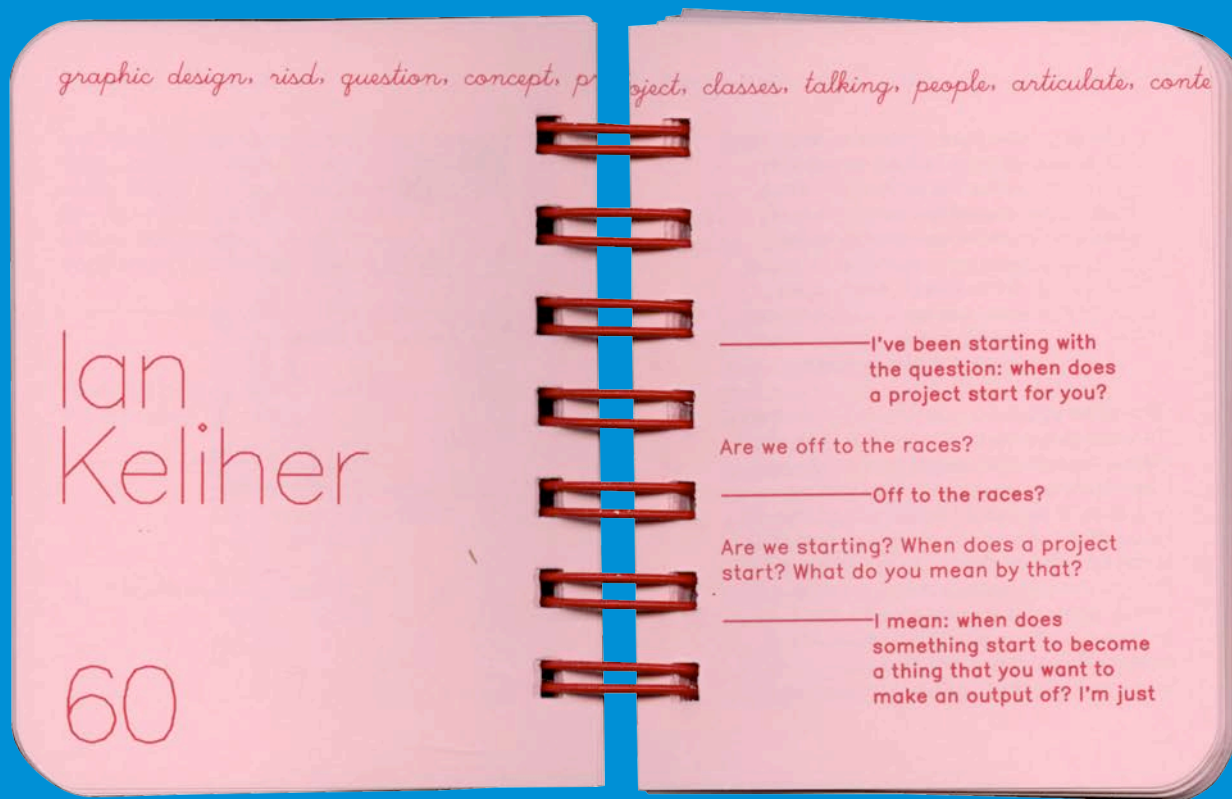 graphic design, risd, question, concept, project, classes, talking, people, articulate, conte
Ian
Keliher
60
I've been starting with
the question: when does
a project start for you?
Are we off to the races?
Off to the races?
Are we starting? When does a project
start? What do you mean by that?
I mean: when does
something start to become
a thing that you want to
make an output of? I'm just